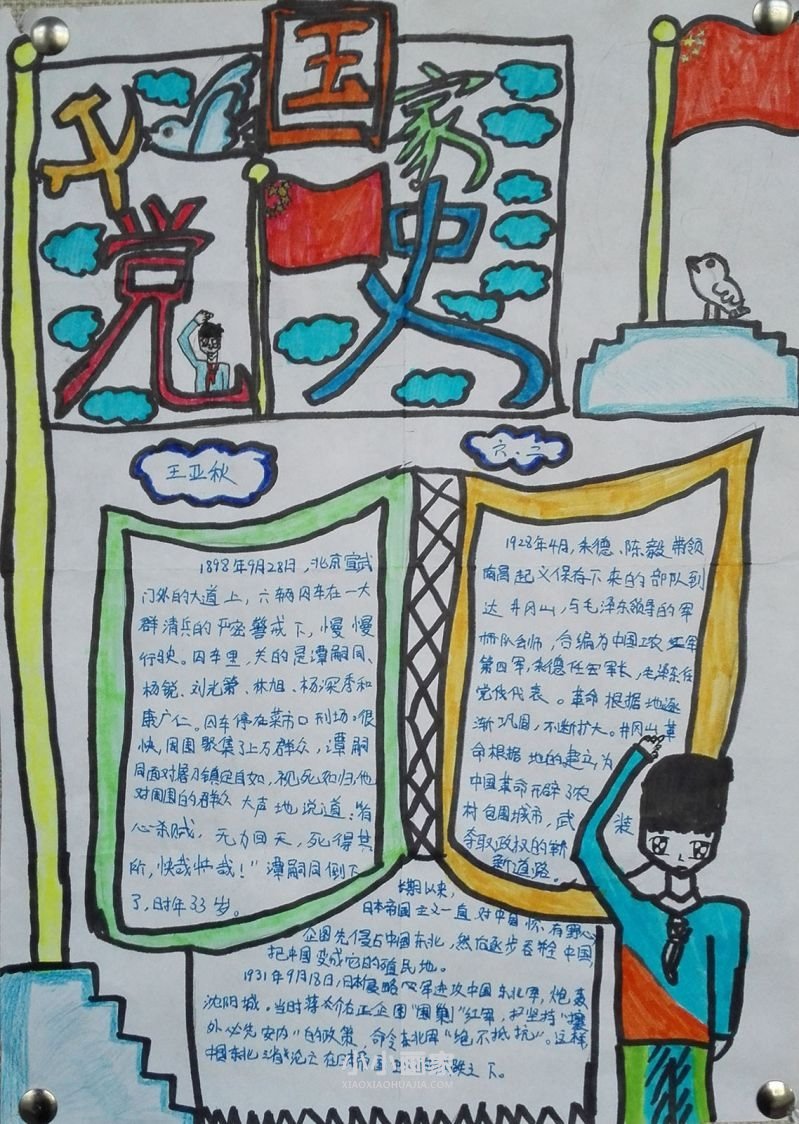 国家
党史
王亚秋
六.二
1898年9月28日,北京宣武
门外的大道上,六辆囚车在一大
群清兵的严密警戒下,慢慢
行驶。囚车里,关的是谭嗣同、
杨锐、刘光第、林旭、杨深秀和
康广仁。囚车停在菜市口刑场。很
快,周围聚集了上万群众,谭嗣
同面对屠刀镇定自如,视死如归,他
对周围的群众大声地说道:"有
心杀贼,无力回天,死得其
所,快哉快哉!"谭嗣同倒下
了,时年33岁。
1928年4月,朱德、陈毅带领
南昌起义保存下来的部队到
达井冈山,与毛泽东领导的军
队会师,合编为中国工农红军
第四军,朱德任军长,毛泽东任
党代表。革命根据地逐
渐巩固,不断扩大。井冈山革
命根据地的建立,为
中国革命开辟了农
村包围城市,武装
夺取政权的
新道路。
长期以来,
日本帝国主义一直对中国怀有野心
企图先侵占中国东北,然后逐步吞牷中国,
把中国变成它的殖民地。
1931年9月18日,日本侵略军进攻中国东北军,炮轰
沈阳城。当时蒋介石正企图"围剿"红军,把坚持"攘
外必先安内"的政策,命令东北军"绝不抵抗"。这样
东北三省沦亡在之下。
小小画家
XIAOXIAOHUAJIA.COM